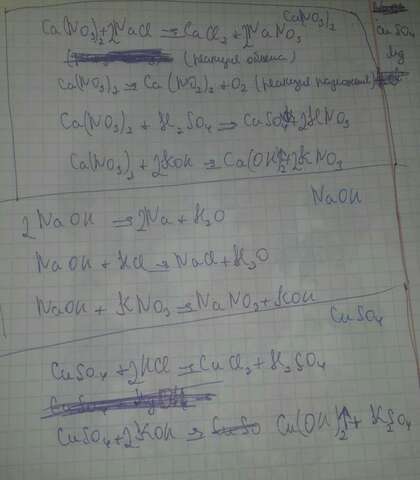 Ca(NO₃)₂
Ca(NO₃)₂+2NaCl ⇒ CaCl₂ + 2NaNO₃
(реакция обмена)
CuSO₄
Ca(NO₃)₂ ⇒ Ca(NO₂)₂ + O₂ (реакция разложения)
Ca(NO₃)₂ + H₂SO₄ ⇒ CuSO₄+2HNO₃
Ca(NO₃)₂ + 2KOH ⇒ Ca(OH)₂+2KNO₃
NaOH
2NaOH ⇒ 2Na + H₂O
NaOH + HCl ⇒ NaCl + H₂O
NaOH + KNO₃ ⇒ NaNO₃ + KOH
CuSO₄
CuSO₄ + 2HCl ⇒ CuCl₂ + H₂SO₄
CuSO₄+2KOH ⇒ Cu(OH)₂↑ + K₂SO₄